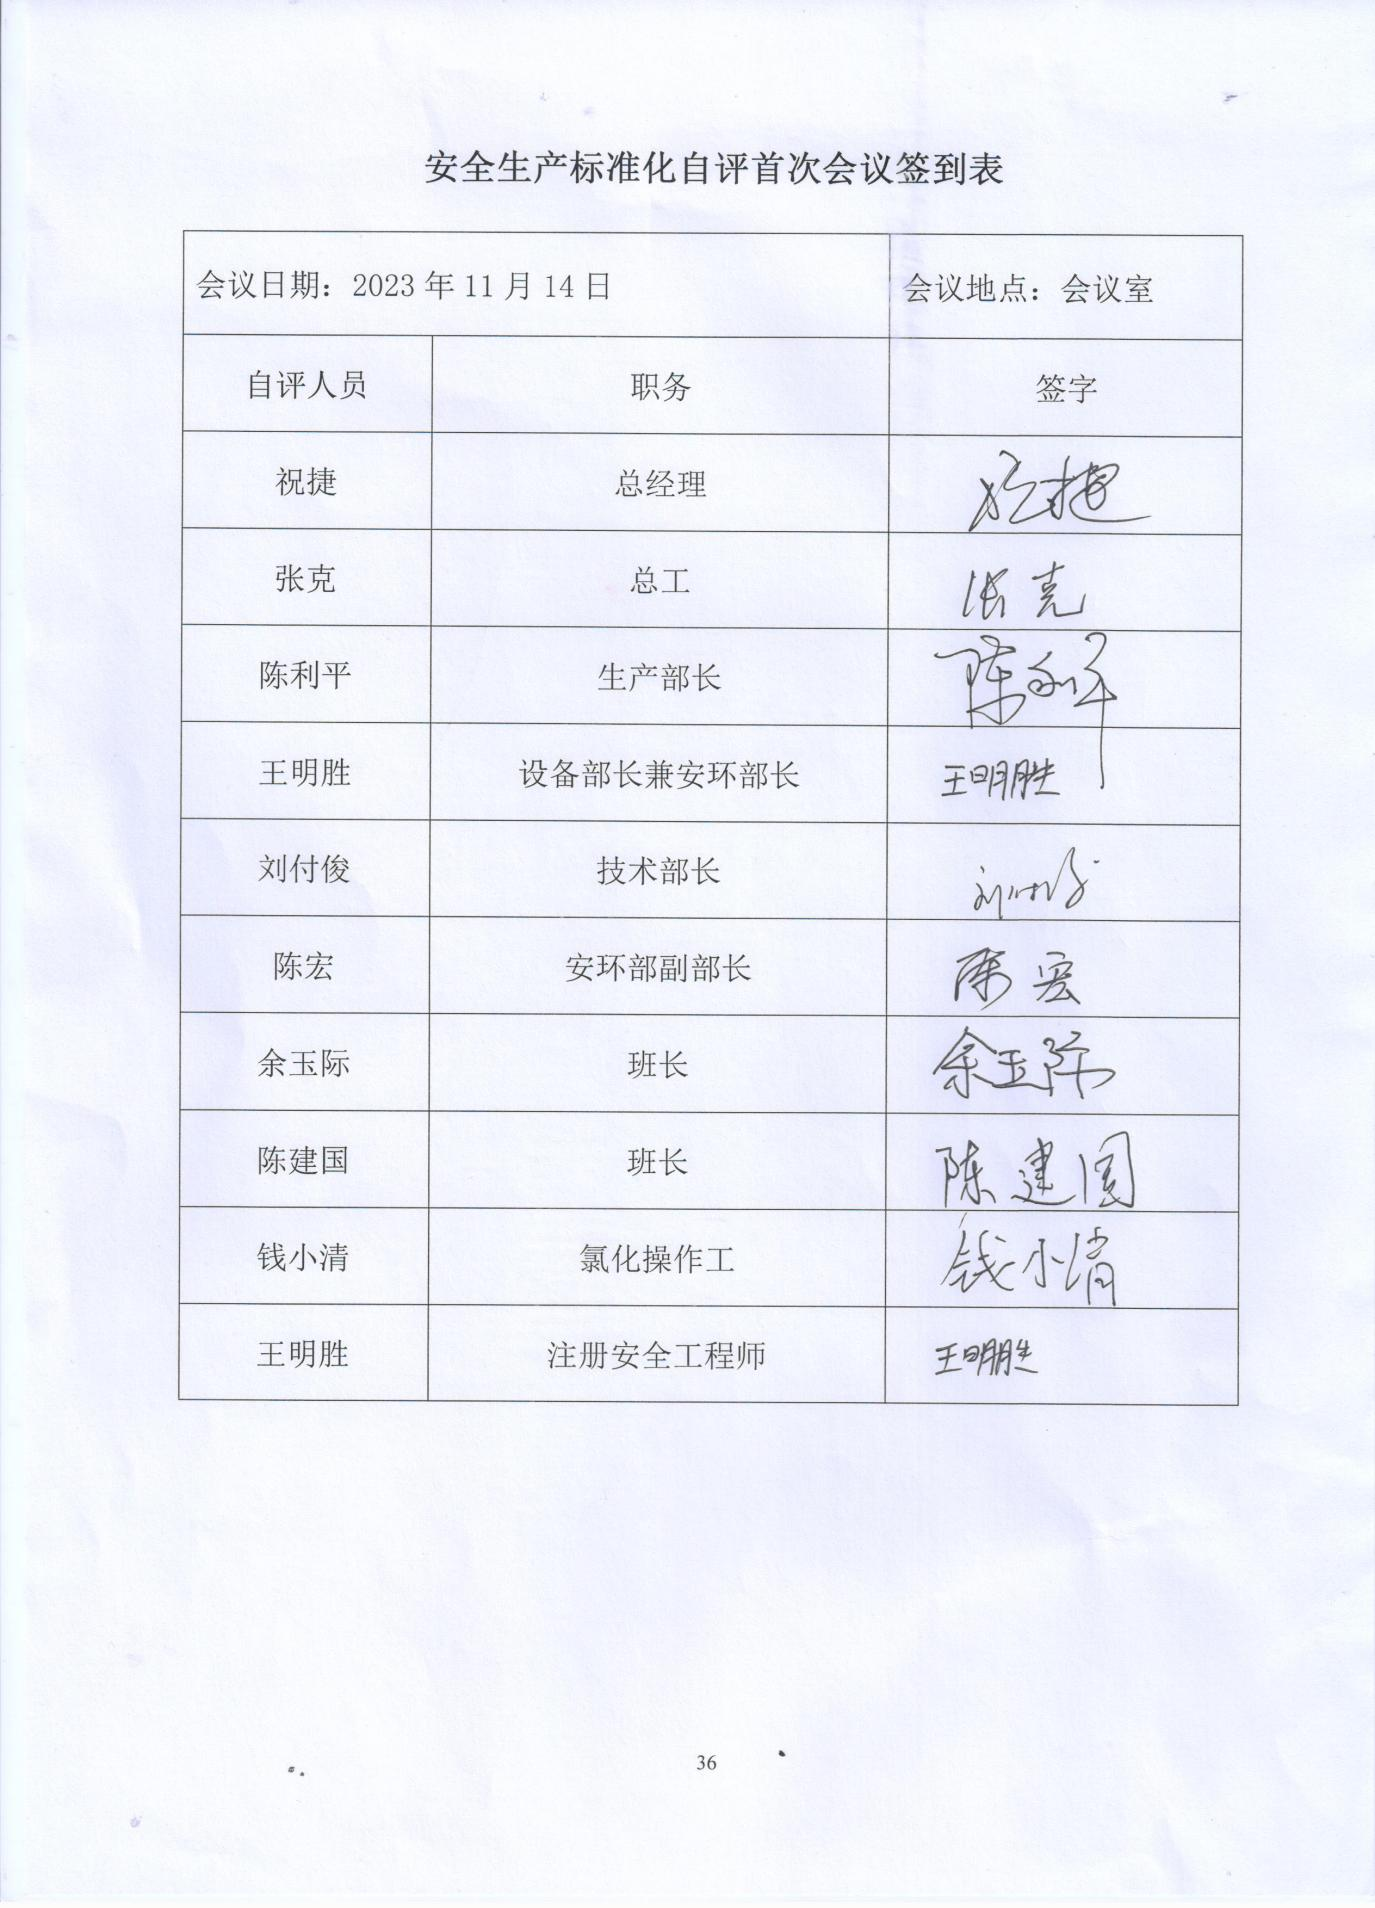 安全生产标准化自评首次会议签到表
会议日期：2023 年 11 月 14 日 会议地点：会议室
自评人员 职务 签字
祝捷 总经理 祝捷
张克 总工 张克
陈利平 生产部长 陈利平
王明胜 设备部长兼安环部长 王明胜
刘付俊 技术部长 刘付俊
陈宏 安环部副部长 陈宏
余玉际 班长 余玉际
陈建国 班长 陈建国
钱小清 氯化操作工 钱小清
王明胜 注册安全工程师 王明胜
36